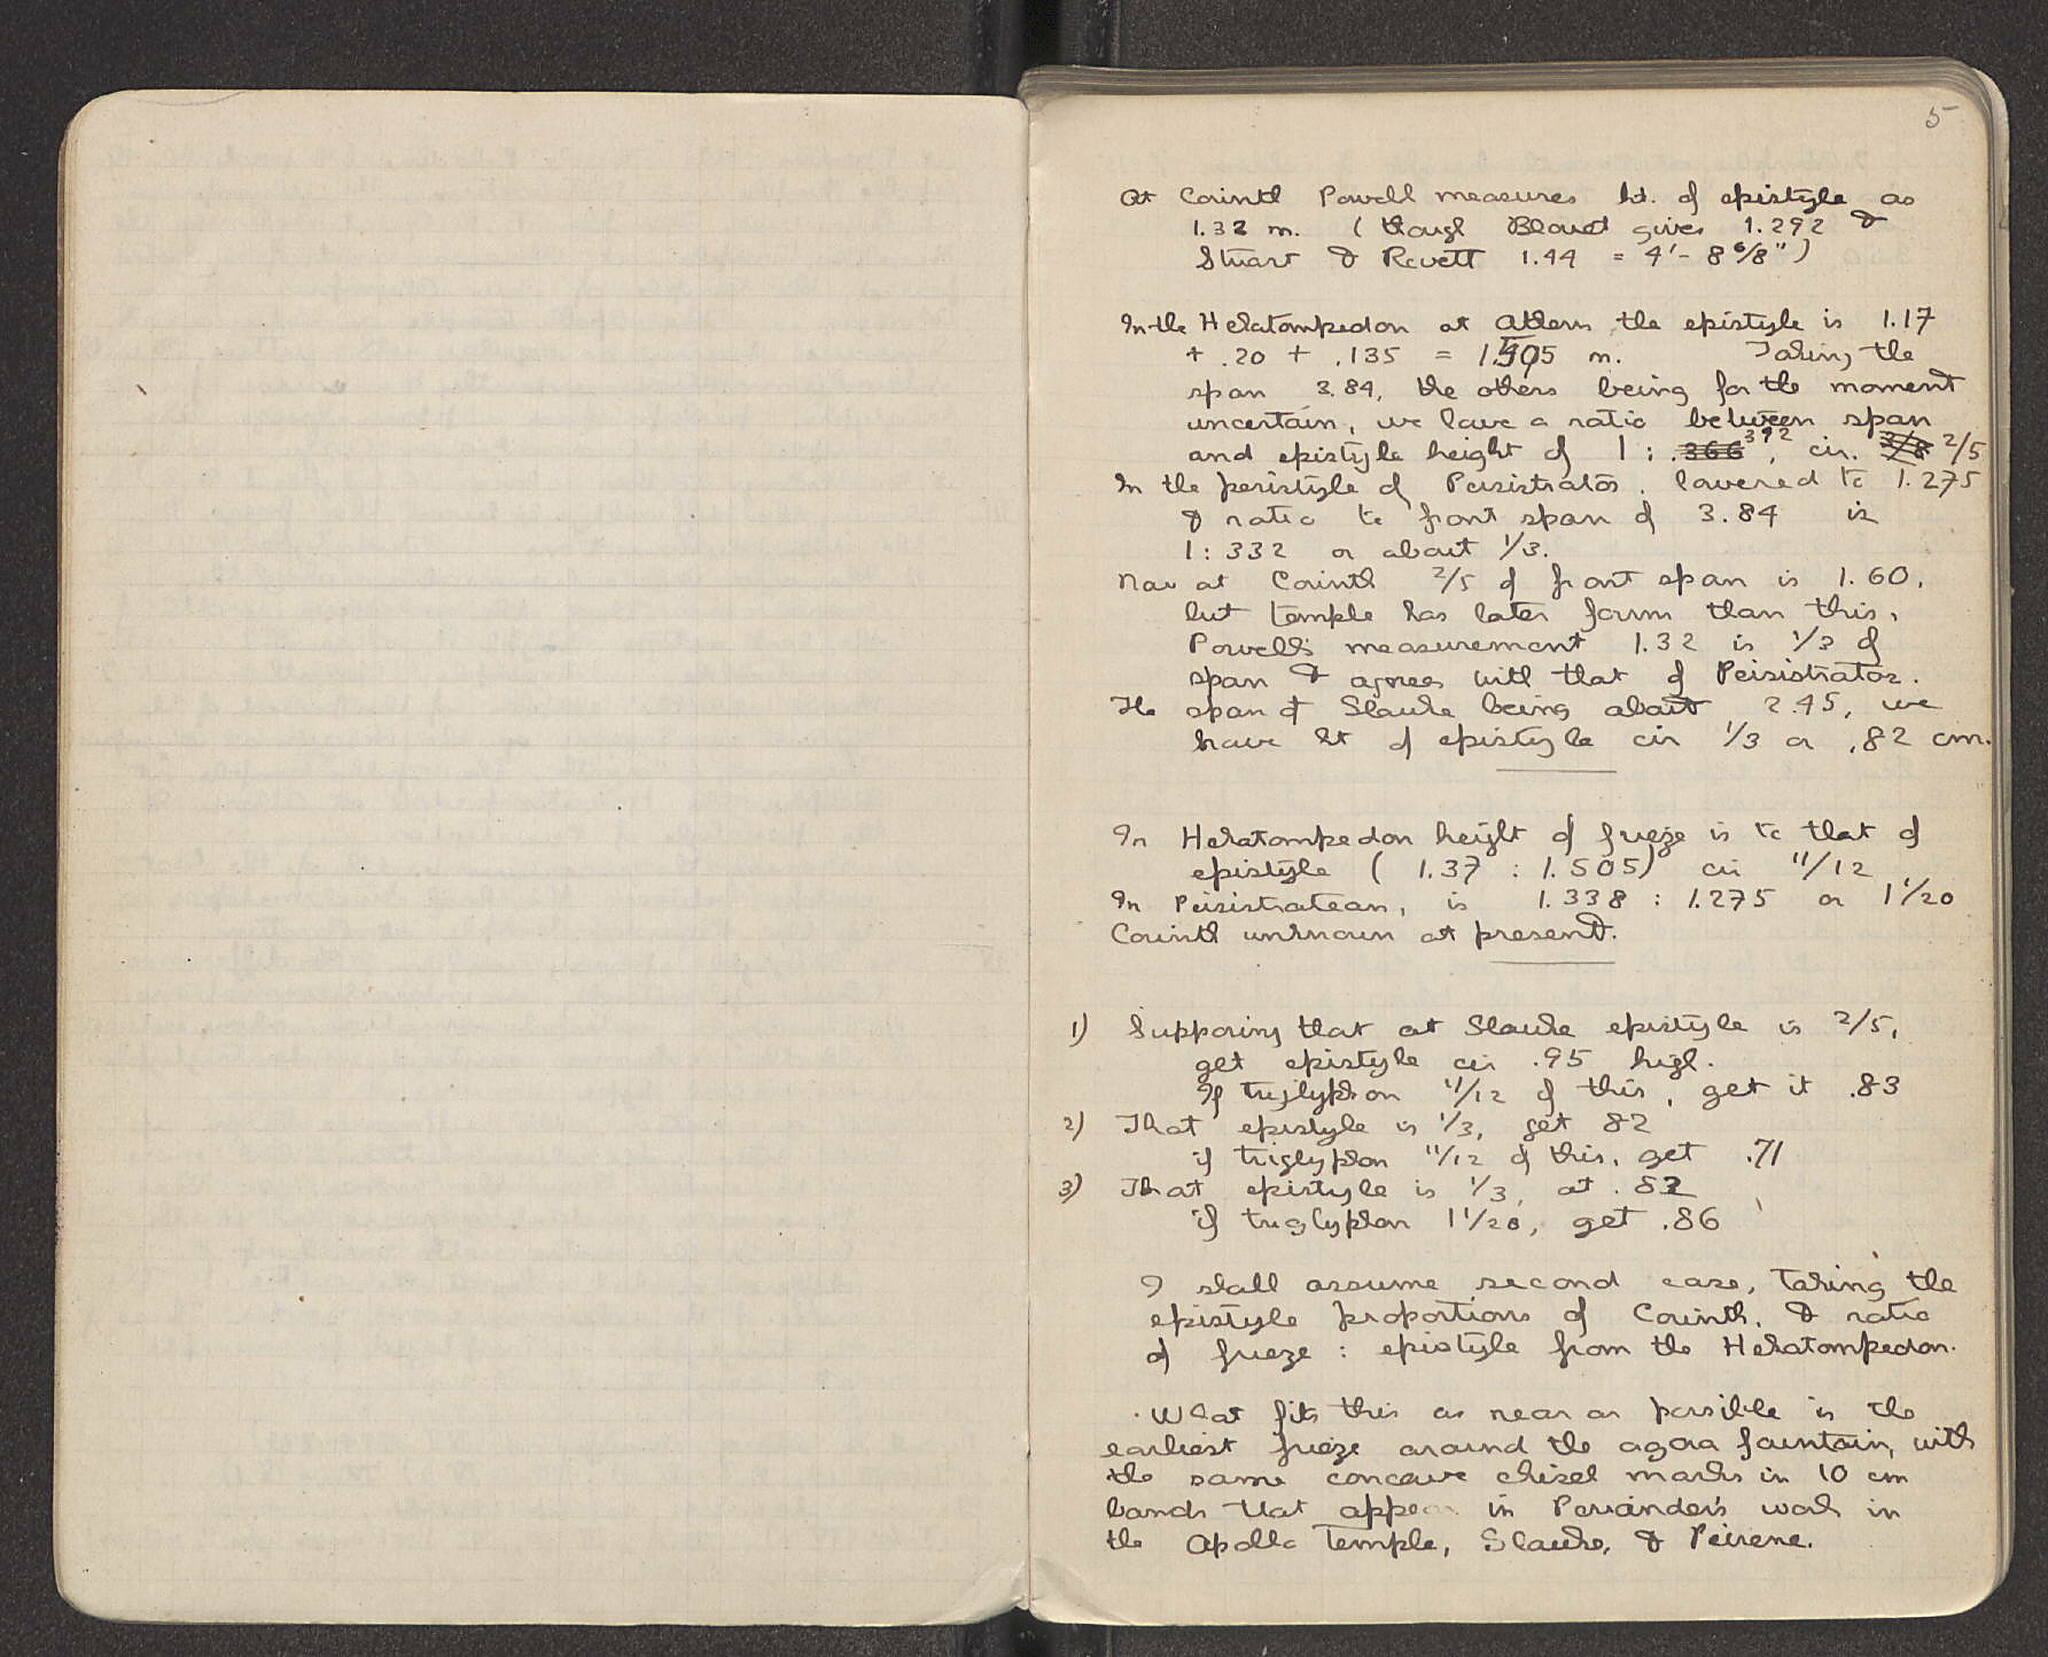 5
At Corinth Powell measures ht. of epistyle as
1.32 m. (though Blouet gives 1.292 &
Stuart & Revett 1.44 = 4' - 8 6/8")
In the Hekatompedon at Athens, the epistyle is 1.17
+ .20 + .135 = 1.505 m. Taking the
span 3.84, the others being for the moment
uncertain, we have a ratio between span
and epistyle height of 1 : .366 392, cir. 3/8 2/5
In the peristyle of Peisistratos, lowered to 1.275
& ratio to front span of 3.84 is
1 : 332 or about 1/3.
Now at Corinth 2/5 of front span is 1.60,
but temple has later form than this,
Powell's measurement 1.32 is 1/3 of
span & agrees with that of Peisistratos.
The span of Glauke being about 2.45, we
have ht of epistyle cir 1/3 or .82 cm.
In Hekatompedon height of frieze is to that of
epistyle (1.37 : 1.505) cir 11/12
In Peisistratean, is 1.338 : 1.275 or 1 1/20
Corinth unknown at present.
1) Supposing that at Glauke epistyle is 2/5,
get epistyle cir .95 high.
If triglyphon 11/12 of this, get it .83
2) That epistyle is 1/3, get 82
if triglyphon 11/12 of this, get .71
3) That epistyle is 1/3, at .82
if triglyphon 1 1/20, get .86
I shall assume second case, taking the
epistyle proportions of Corinth, & ratio
of frieze : epistyle from the Hekatompedon.
What fits this as near as possible is the
earliest frieze around the agora fountain, with
the same concave chisel marks in 10 cm
bands that appear in Periander's work in
the Apollo Temple, Glauke, & Peirene.